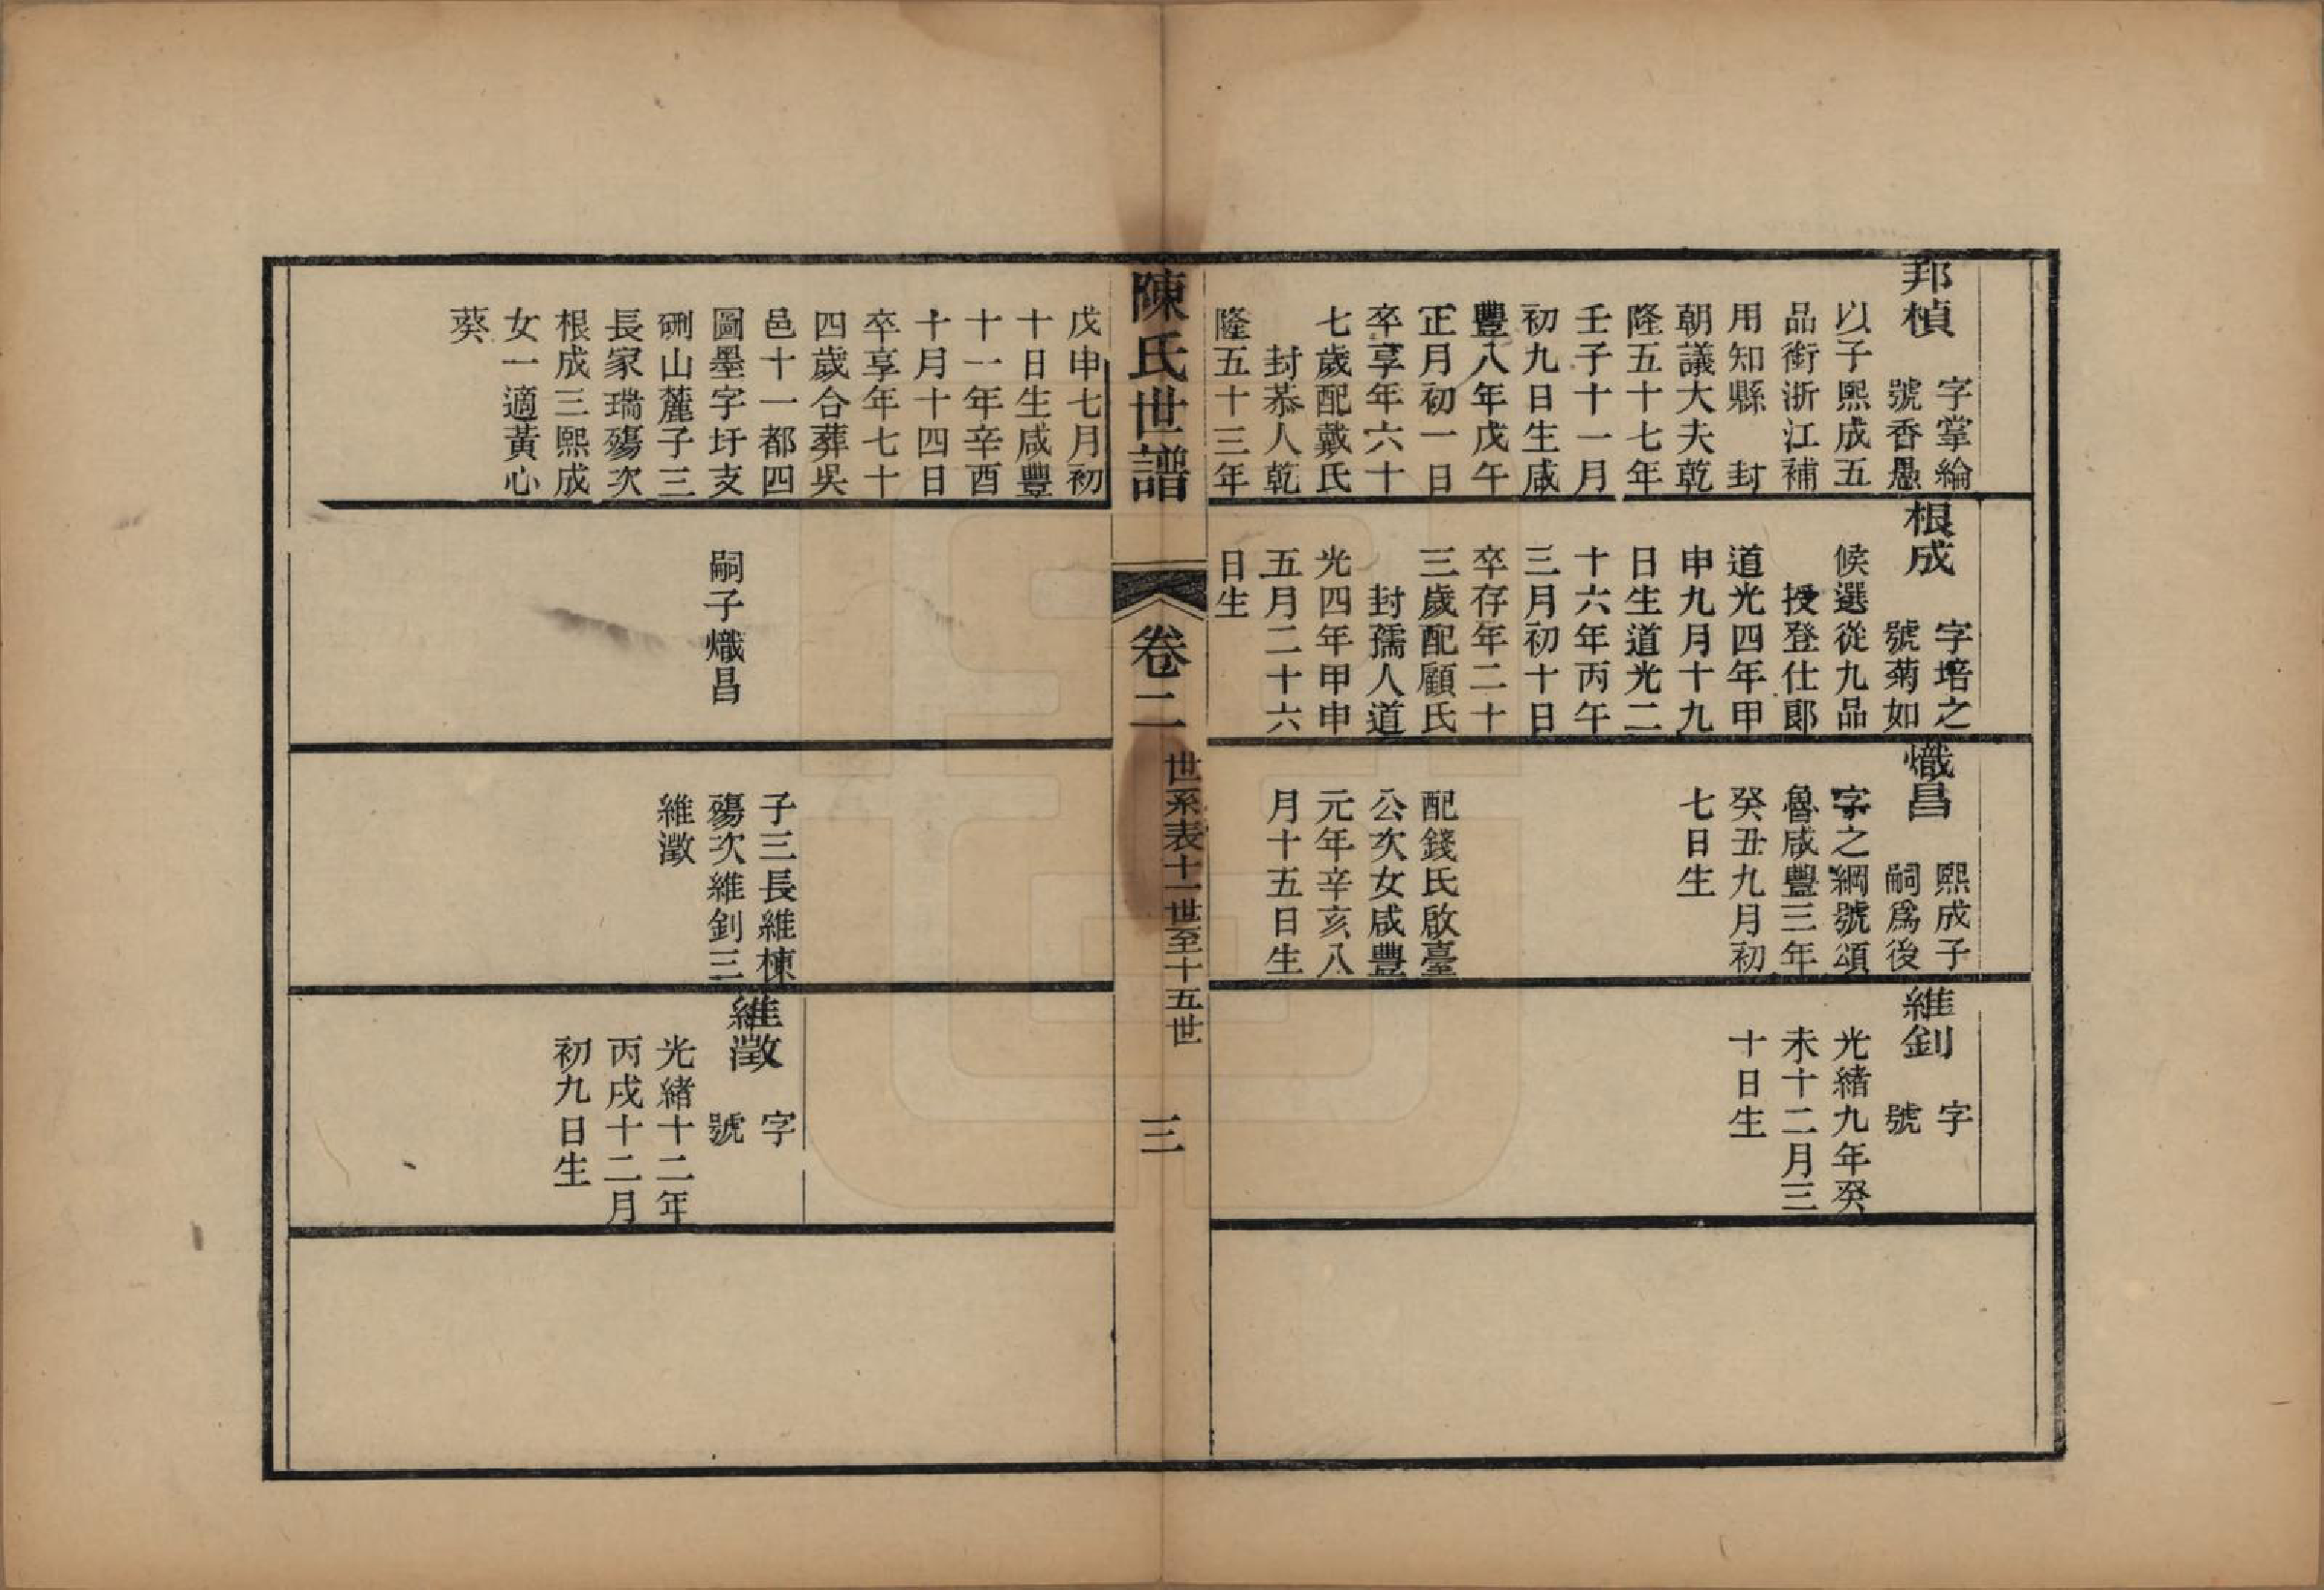 邦楨
字掌綸
號香愚
以子熙成五
品銜浙江補
用知縣　封
朝議大夫乾
隆五十七年
壬子十一月
初九日生咸
豐八年戊午
正月初一日
卒享年六十
七歲配戴氏
封恭人乾
隆五十三年
戊申七月初
十日生咸豐
十一年辛酉
十月十四日
卒享年七十
四歲合葬吳
邑十一都四
圖墨字圩支
硎山麓子三
長家瑞殤次
根成三熙成
女一適黃心
葵
根成
字培之
號菊如
候選從九品
授登仕郎
道光四年甲
申九月十九
日生道光二
十六年丙午
三月初十日
卒存年二十
三歲配顧氏
封孺人道
光四年甲申
五月二十六
日生
嗣子熾昌
熾昌
熙成子
嗣爲後
字之綱號頌
魯咸豐三年
癸丑九月初
七日生
配錢氏啟臺
公次女咸豐
元年辛亥八
月十五日生
子三長維棟
殤次維釗三
維澂
維釗
字
號
光緒九年癸
未十二月三
十日生
維澂
字
號
光緒十二年
丙戌十二月
初九日生
陳氏世譜
卷二
世系表十一世至十五世
三